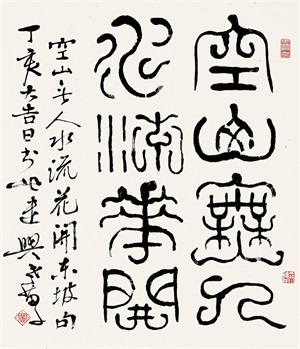 空山無人
水流華開
空山无人水流花開东坡句
丁亥大吉日书